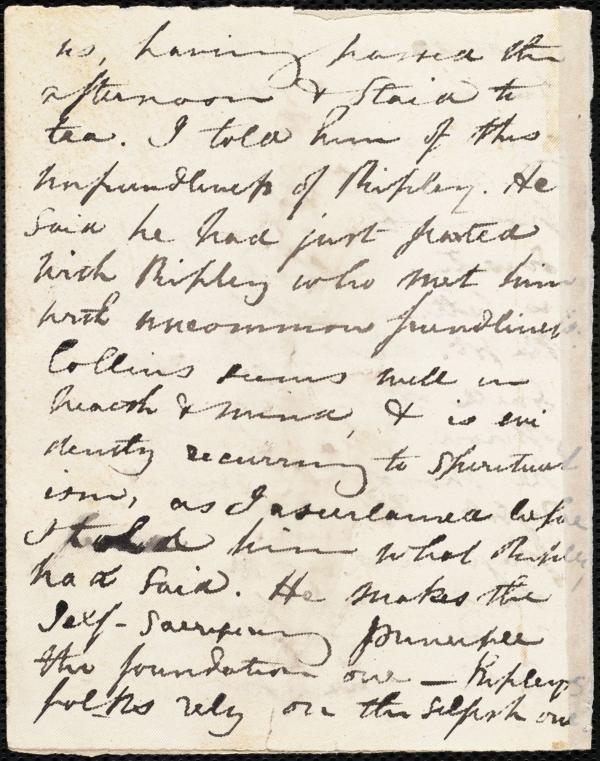 us, having passed the
afternoon & staid to
tea. I told him of this
unfriendliness of Ripley. He
said he had just parted
with Ripley who met him
with uncommon friendliness.
Collins seems well in
health & mind, & is evi
dently recurring to Spiritual
ism, as I ascertained before
I told him what Ripley
had said. He makes the
self-sacrificing principle
the foundation one — Ripley's
folks rely on the selfish one